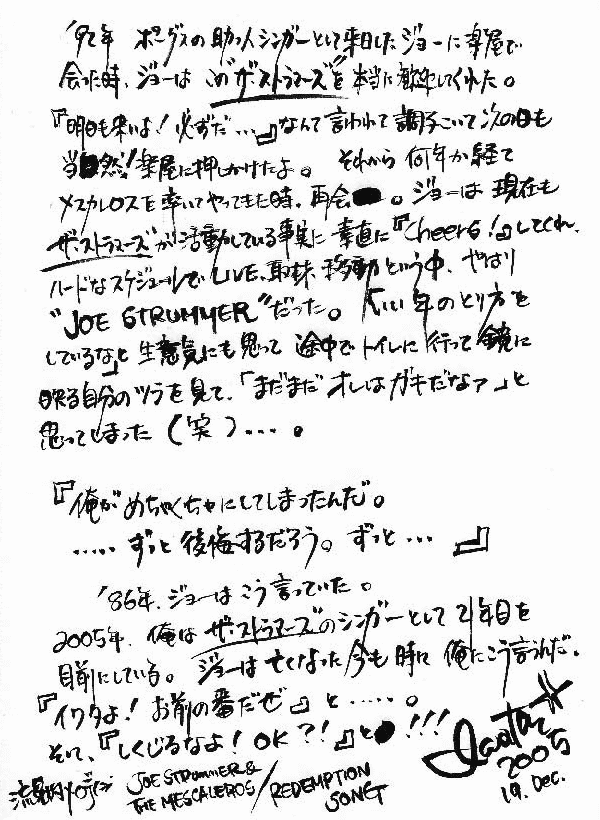 '92年 ポーグスの助っ人シンガーとして来日したジョーに楽屋で
会った時、ジョーは この"ザ・ストラマーズ"を本当に歓迎してくれた。
『明日も来いよ!必ずだ…』なんて言われて調子こいて次の日も
当然!楽屋に押しかけたよ。それから何年か経て
メスカレロスを率いてやってきた時、再会。ジョーは現在も
ザ・ストラマーズが活動している事実に素直に『Cheers!』してくれ、
ハードなスケジュールでLIVE、取材、移動という中、やはり
"JOE STRUMMER"だった。「いい年のとり方を
しているな」と生意気にも思って途中でトイレに行って鏡に
映る自分のツラを見て、「まだまだオレはガキだなァ」と
思ってしまった(笑)…。
『俺がめちゃくちゃにしてしまったんだ。
……ずっと後悔するだろう。ずっと…』
'86年、ジョーはこう言っていた。
2005年、俺はザ・ストラマーズのシンガーとして21年目を
目前にしている。ジョーは亡くなった今も時に俺にこう言うんだ。
『イワタよ!お前の番だぜ』と……。
そして、『しくじるなよ!OK?!』と!!!
Iwata
2005
19. Dec.
JOE STRUMMER &
THE MESCALEROS / REDEMPTION
SONG